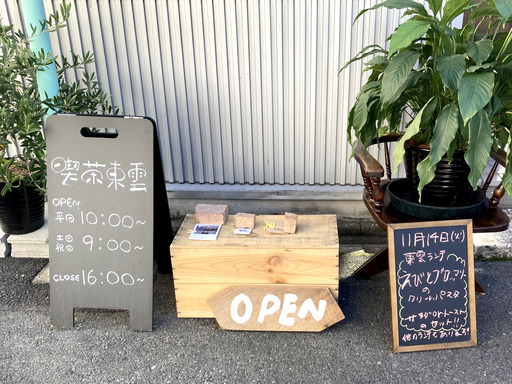 喫茶東雲
OPEN
平日 10:00〜
土日祝 9:00〜
CLOSE 16:00〜
OPEN
11月14日(火)
東雲ランチ
えびとブロッコリー
の
クリームパスタ
サラダ トースト
のセット!!
他カラーてあります!